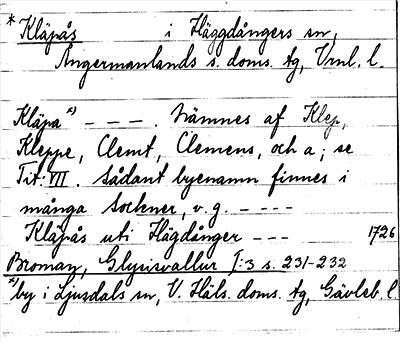 * Kläpås i Häggdångers sn,
Ångermanlands s. doms. tg, Vrnl. l.
Kläpa *) - - - . Nämnes af Klep,
Kleppe, Clemt, Clemens, och a; se
Tit: VII. Sådant byenamn finnes i
många Sockner, v.g. - - - -
Kläpås uti Hägdånger - - - 1726
Broman, Glysisvallur I:3 s. 231-232
*) by i Ljusdals sn, V. Häls. doms. tg, Gävleb. l.